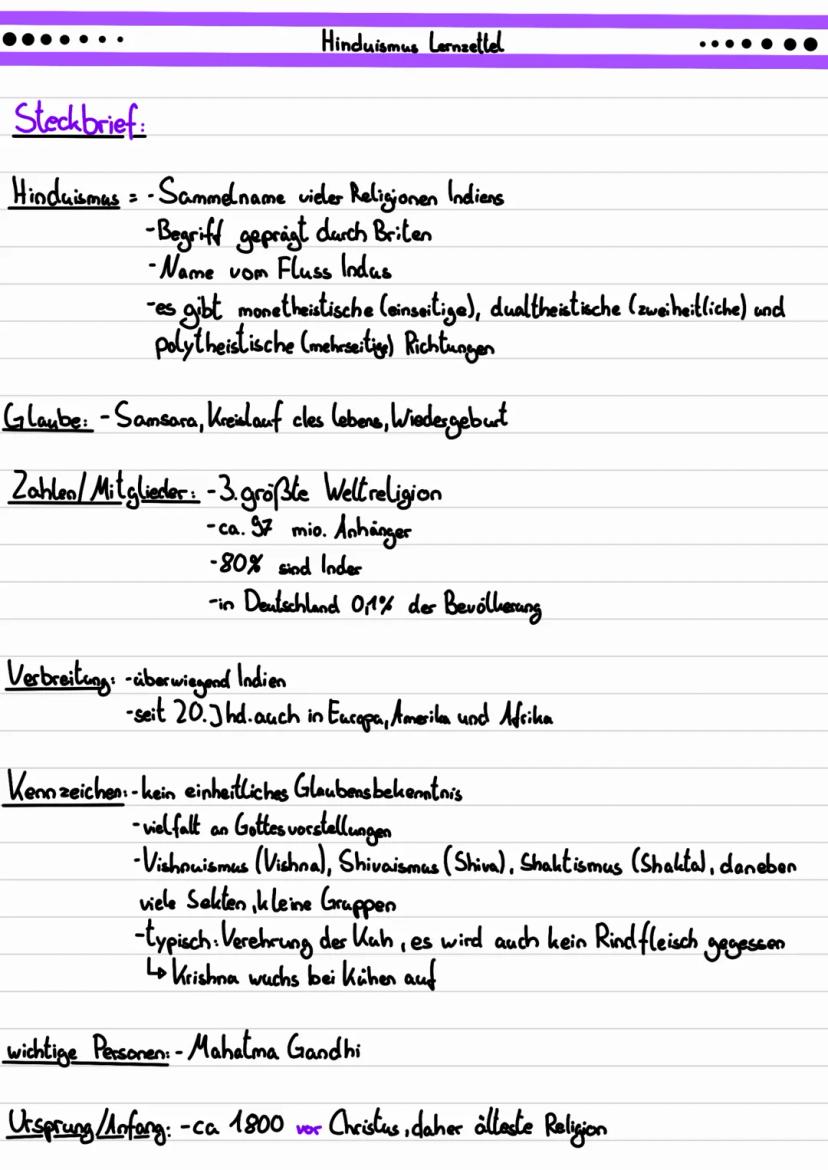 Hinduismus Lernzettel
Steckbrief:
Hinduismus = - Sammelname vieler Religionen Indiens
- Begriff geprägt durch Briten
- Name vom Fluss Indus
- es gibt monetheistische (einseitige), dualtheistische (zweiheitliche) und
polytheistische (mehrseitige) Richtungen
Glaube: - Samsara, Kreislauf des lebens, Wiedergeburt
Zahlen/Mitglieder: - 3. größte Weltreligion
- ca. 97 mio. Anhänger
- 80% sind Inder
- in Deutschland 0,1% der Bevölkerung
Verbreitung: - überwiegend Indien
- seit 20. Jhd. auch in Europa, Amerika und Afrika
Kennzeichen: - kein einheitliches Glaubensbekenntnis
- vielfalt an Gottesvorstellungen
- Vishnuismus (Vishna), Shivaismus (Shiva), Shaktismus (Shakta), daneben
viele Sekten, kleine Gruppen
- typisch: Verehrung der Kuh, es wird auch kein Rindfleisch gegessen
↳ Krishna wuchs bei Kühen auf
wichtige Personen: - Mahatma Gandhi
Ursprung/Anfang: - ca 1800 vor Christus, daher älteste Religion